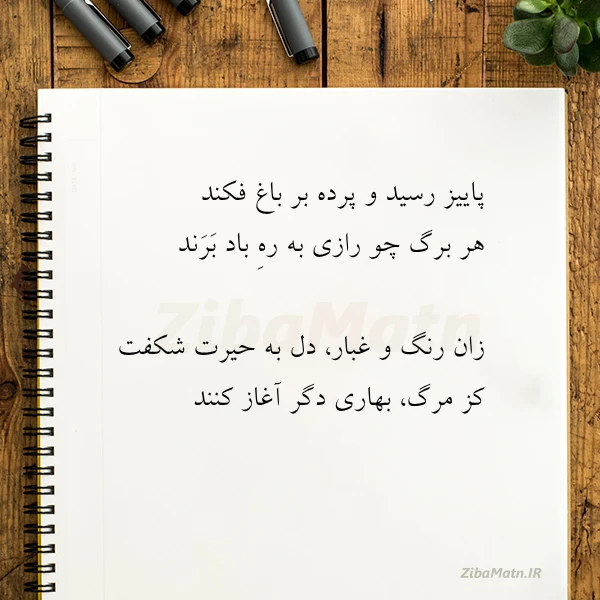 پاییز رسید و پرده بر باغ فکند
هر برگ چو رازی به رهِ باد بَرَند
زان رنگ و غبار، دل به حیرت شکفت
کز مرگ، بهاری دگر آغاز کنند
ZibaMatn
ZibaMatn.IR